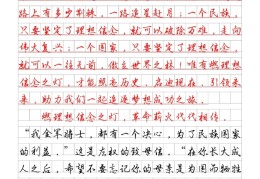 路上有多少荆棘，一路追星赶月；一个民族，
只要坚定了理想信念，就可以破除万难，走向
伟大复兴；一个国家，只要坚定了理想信念，
就可以一往无前，傲立世界之林！唯有燃理想
信念之灯，才能照亮历史、启迪现在、引领未
来，助力我们一起追逐梦想成功之旅。
燃理想信念之灯，革命薪火代代相传。
“我金军骑士，都有一个决心，为了民族国家
的利益。”这是左权的致母信，“在你长大成
人之后，希望不要忘记你的母亲是为国而牺牲